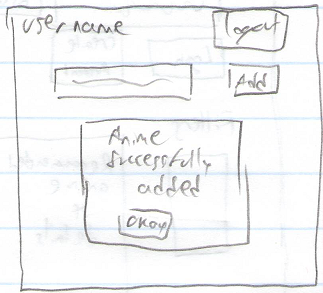 Username
Logout
Add
Anime
Successfully
added
Okay